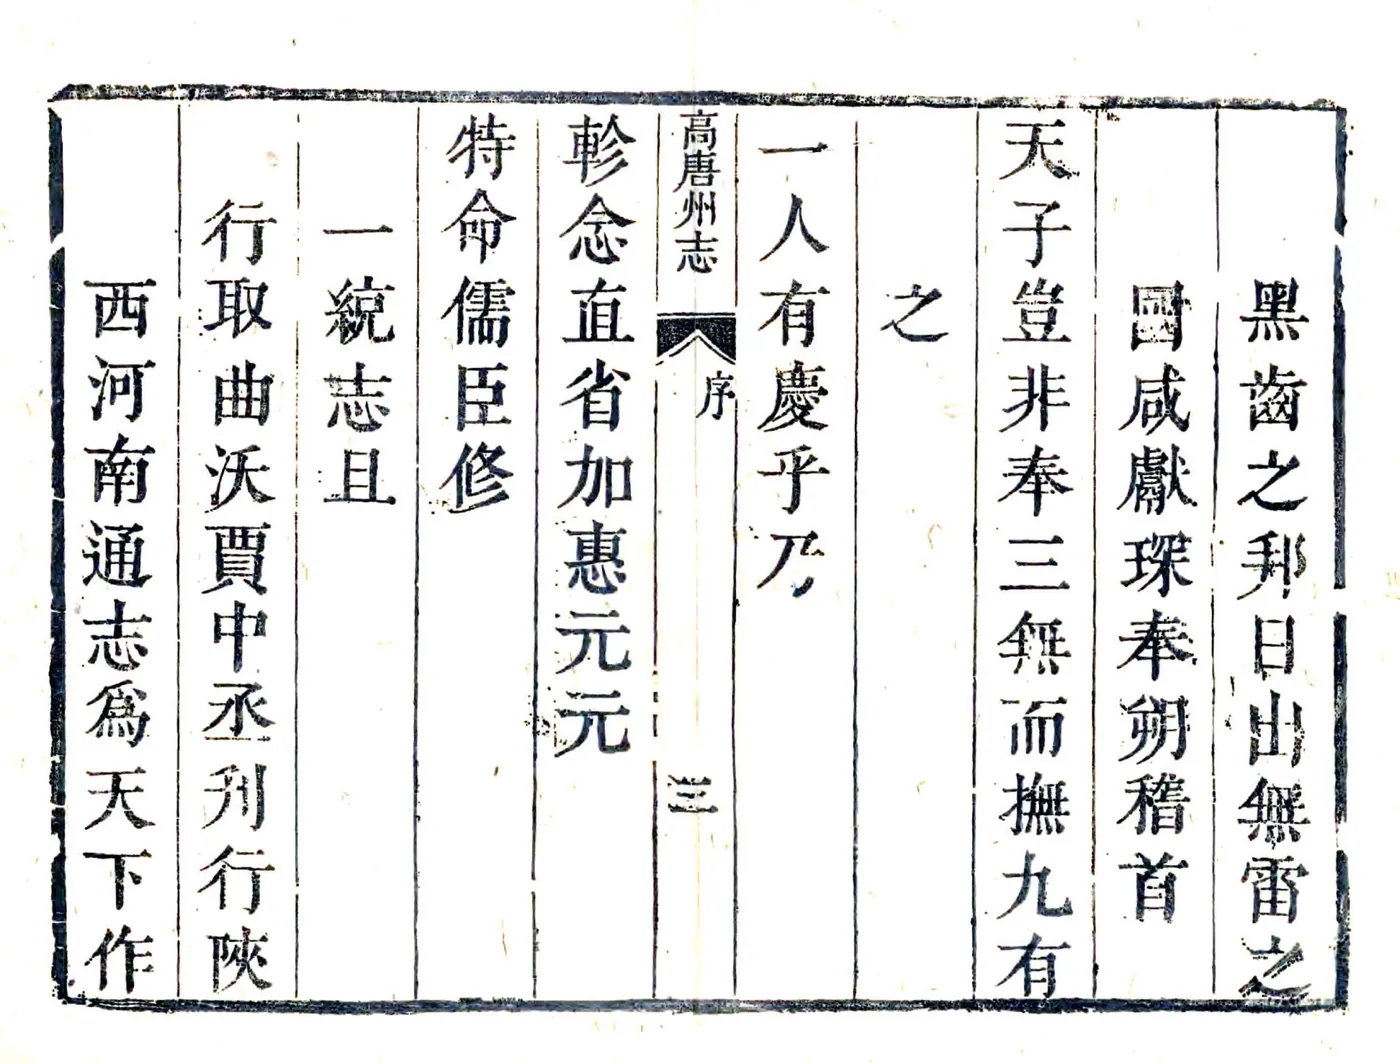 黑齒之邦日出無雷之
國咸獻琛奉朔稽首
天子豈非奉三無而撫九有
之
一人有慶乎乃
高唐州志
序
三
軫念直省加惠元元
特命儒臣修
一統志且
行取曲沃賈中丞刋行陝
西河南通志爲天下作